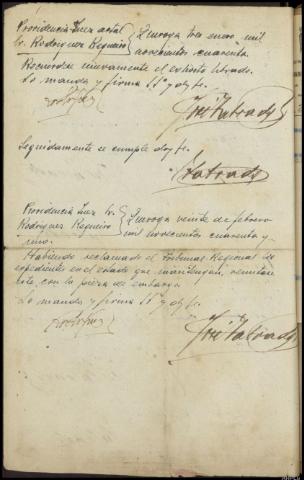 Providencia Juez actal
Sr. Rodriguez Requeiro
Quiroga tres enero mil
novecientos cuarenta.
Recuerdese nuevamente el exhorto librado.
Lo manda y firma SSª y doy fe.
José Tatrado
Seguidamente se cumple doy fe.
Tatrado
Providencia Juez Sr.
Rodriguez Requeiro
Quiroga veinte de febrero
mil novecientos cuarenta y
uno.
Habiendo reclamado el Tribunal Regional el
expediente en el estado que se,
este, con la pieza de embargo.
Lo manda y firma SSª y doy fe.
José Tatrado